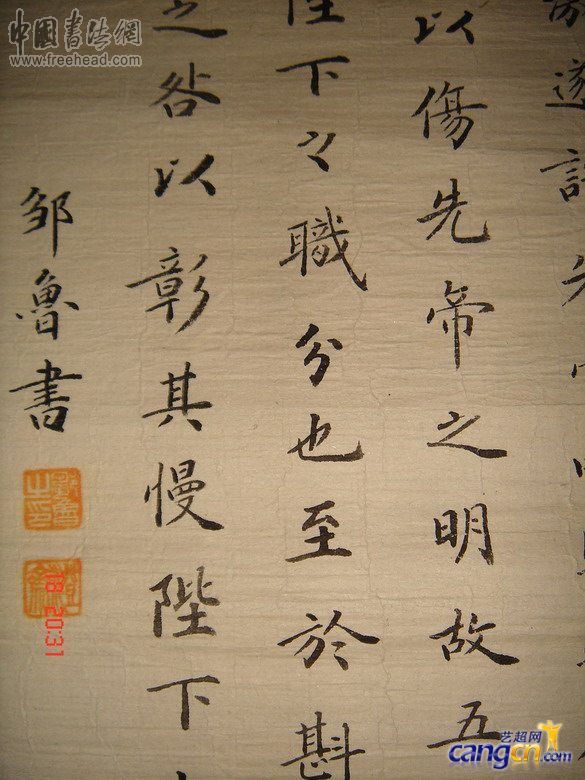 遂許先
以傷先帝之明故五
陛下之職分也至於斟
之咎以彰其慢陛下
邹魯書
鄒魯之印
18 20:31
中國書法網
www.freehead.com
艺超网
cangcn